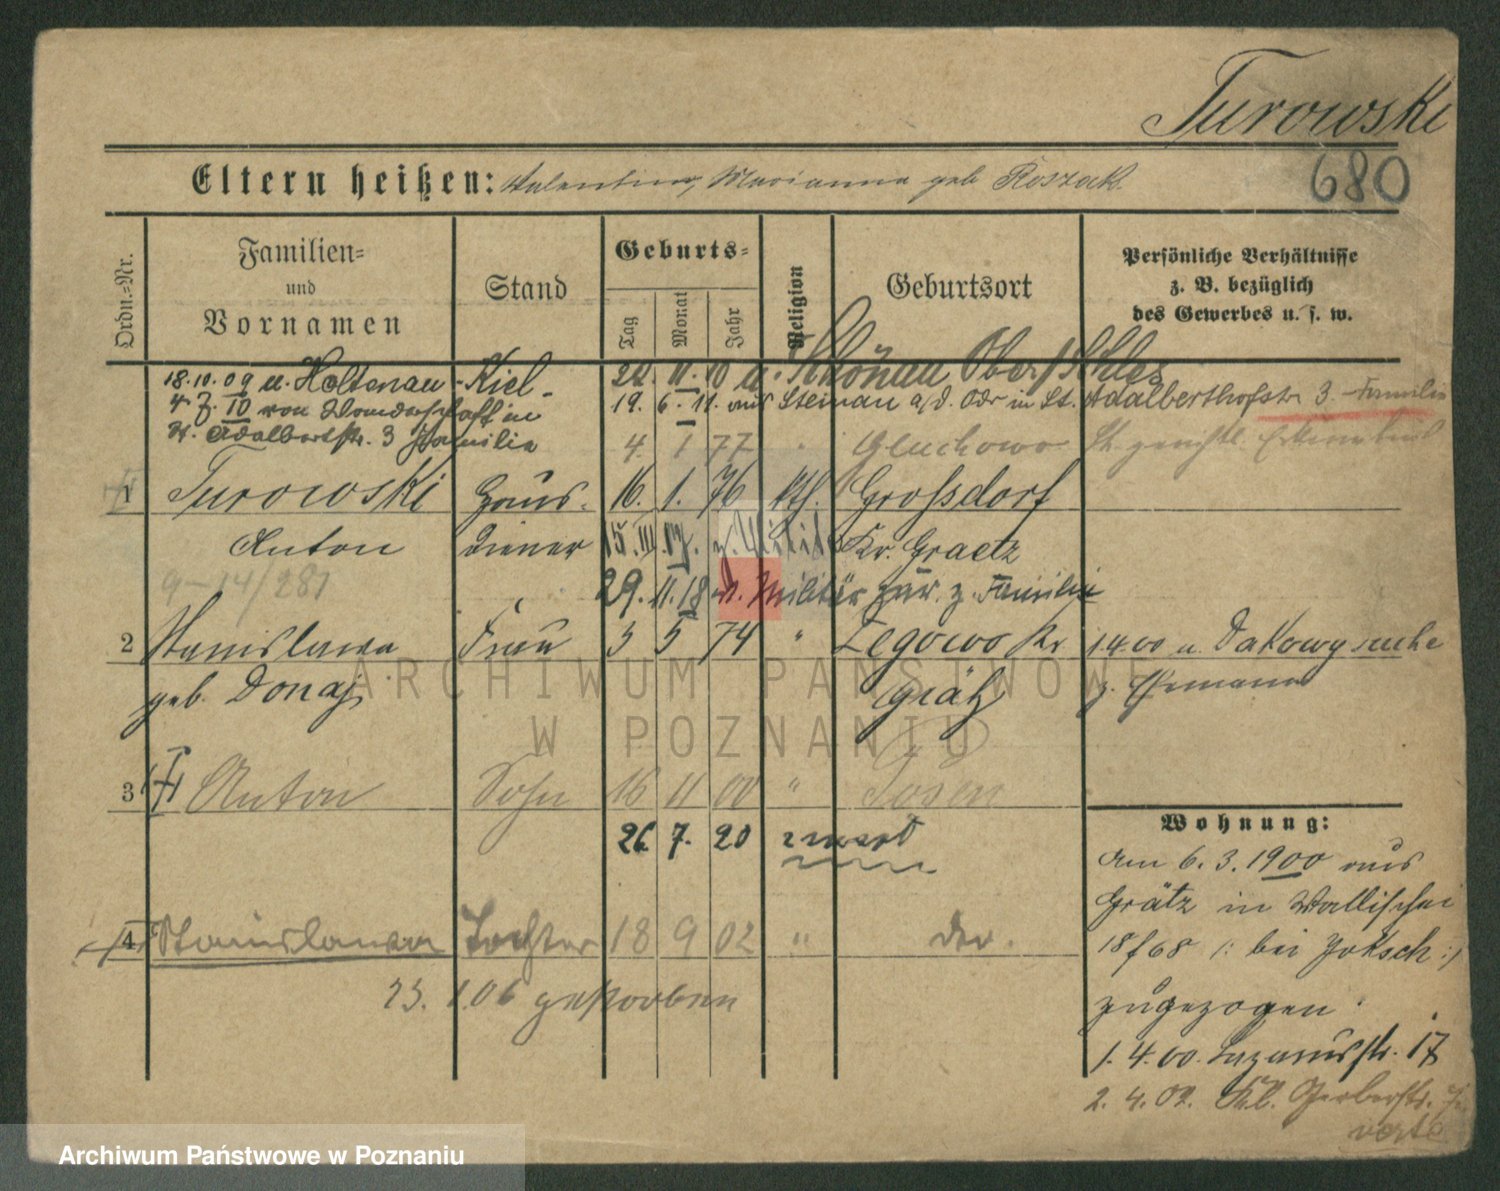 Turowski
680
Eltern heißen: Valentin, Marianna geb Roszak.
Ordn.=Nr.
Familien=
und
Vornamen
Stand
Geburts=
Tag
Monat
Jahr
Religion
Geburtsort
Persönliche Verhältnisse
z. B. bezüglich
des Gewerbes u. s. w.
18.10.09 n. Holtenau - Kiel -
24. 11. 10 n. Schönau Ober/Schles
4. 7. 10 von Wanderschaft in
19. 6. 11. aus Steinau a/d. Odr in St. Adalberthofstr 3. - Familie
St. Adalbertstr. 3 Familie
4. 1 77 " Gluchowo
1 Turowski Haus- 16. 1. 76 kth. Grossdorf
Anton diener 15. III. 17. z. Militär Kr. Graetz
9-14/281
29. 11. 18 v. Militär zur. z. Familie
2 Stanislawa Frau 5 5 74 " Zegowo Kr 1.4.00 n. Dakowy suche
geb. Donaj Grätz z. Ehemann
3 Anton Sohn 16 11 00 " Posen
26. 7. 20
Wohnung:
Am 6. 3. 1900 aus
Grätz in Wallischei
4 Stanislawa Tochter 18 9 02 " do.
18/68 /: bei Joksch :/
23. 1.06 gestorben
zugezogen.
1. 4. 00. Lazarusstr. 17
2. 4. 02. Kl. Gerberstr.
verte
ARCHIWUM PAŃSTWOWE
W POZNANIU
Archiwum Państwowe w Poznaniu